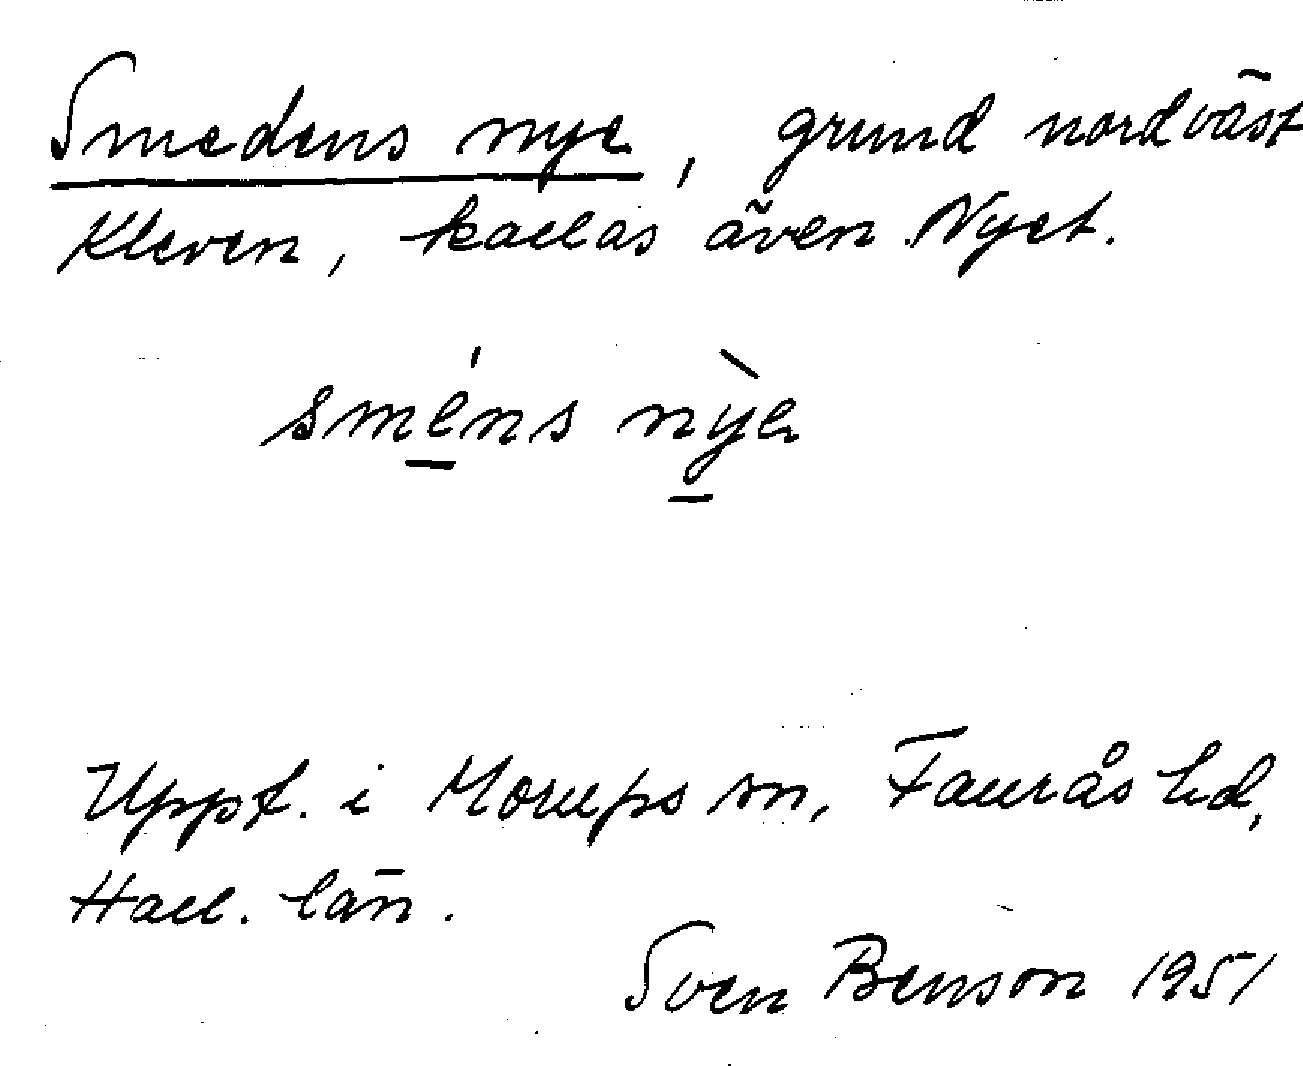 Smedens nye, grund nordväst
Kleven, kallas även Nyet.
sméns nỳe
Uppt. i Morups sn, Faurås hd,
Hall. län.
Sven Benson 1951